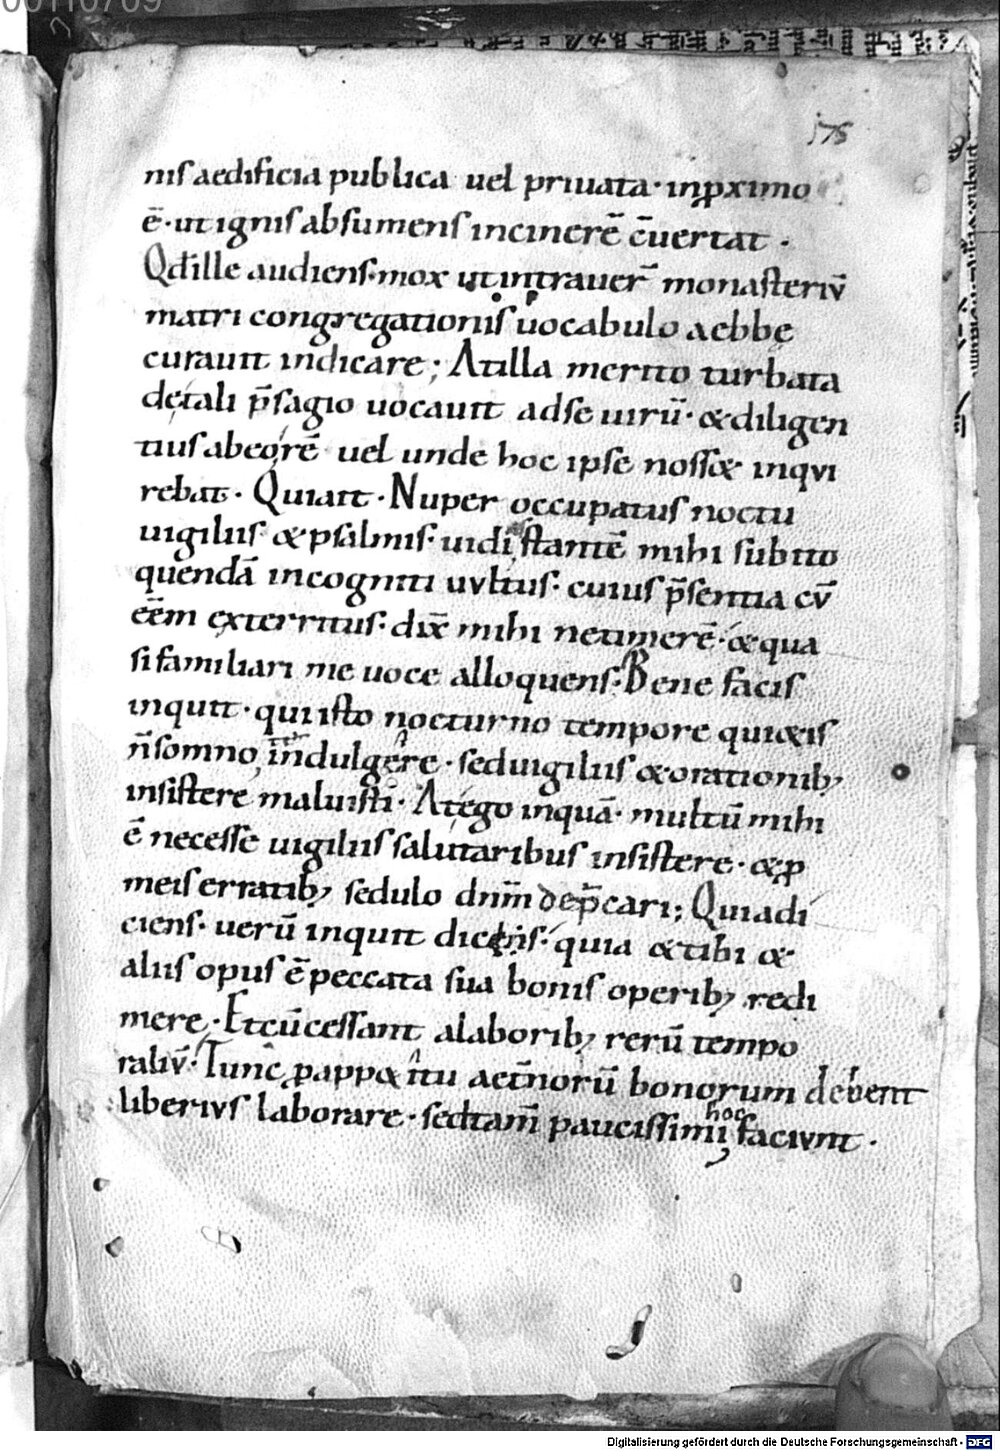 175
nis aedificia publica uel priuata· inꝓximo
ē· ut ignis absumens incinerē c̄uertat·
Qd̄ ille audiens· mox ut intrauer̄ monasteriū
matri congregationis uocabulo aebbę
curauit indicare; At illa merito turbata
de tali p̄sagio uocauit ad se uirū· & diligen
tius ab eo rē uel unde hoc ipse noss& inqui
rebat· Qui ait· Nuper occupatus noctu
uigiliis & psalmis· uidi stantē mihi subito
quendā incogniti uultus· cuius p̄sentia cū
eēm exterritus· dix̄ mihi ne timerē· & qua
si familiari me uoce alloquens· Bene facis
inquit· qui isto nocturno tempore qui&is
n̄ somno indulgere· sed uigiliis & orationib;
insistere maluisti· At ego inquā· multū mihi
ē necesse uigiliis salutaribus insistere· & ꝓ
meis erratib; sedulo dnm̄ dep̄cari; Qui adi
ciens· uerū inquit dicis· quia & tibi &
aliis opus ē peccata sua bonis operib; redi
mere· Et cū cessant a laborib; rerū tempo
raliū· Tunc ꝓ app&itu aet̄norū bonorum debent
liberius laborare· sed tam̄ paucissimi hoc faciunt·
Digitalisierung gefördert durch die Deutsche Forschungsgemeinschaft - DFG